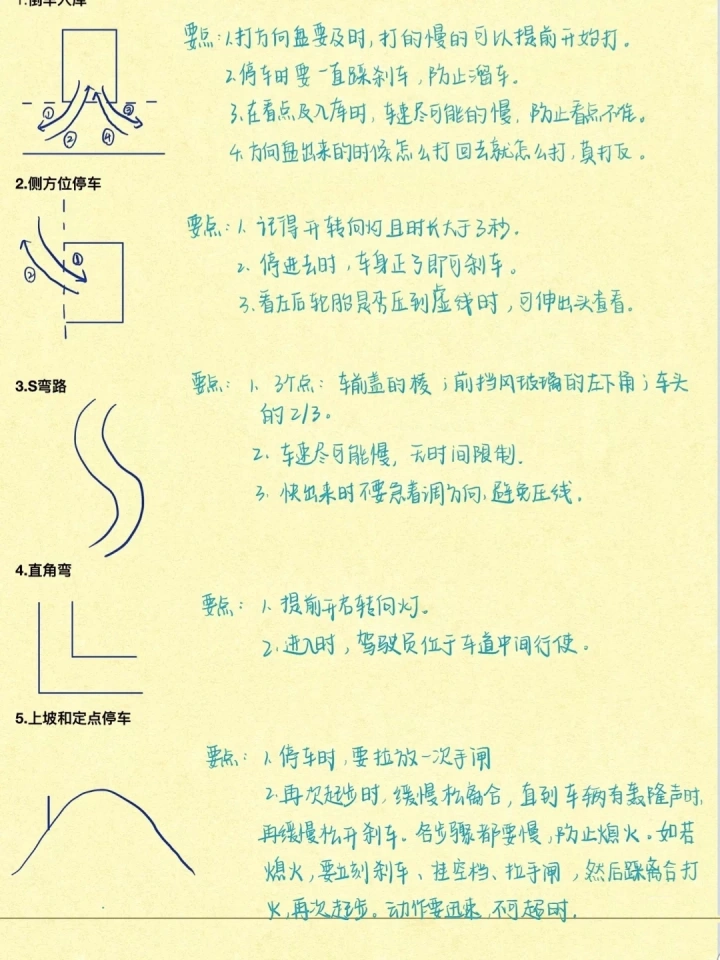 1.倒车入库
要点：1.打方向盘要及时，打的慢的可以提前开始打。
2.停车时要一直踩刹车，防止溜车。
3.在看点及入库时，车速尽可能的慢，防止看点不准。
4.方向盘出来的时候怎么打回去就怎么打，莫打反。
① ② ③ ④
2.侧方位停车
要点：1.记得开转向灯且时长大于3秒。
2.停进去时，车身正了即可刹车。
3.看左后轮胎是否压到虚线时，可伸出头查看。
① ②
3.S弯路
要点：1.3个点：车前盖的棱；前挡风玻璃的左下角；车头
的2/3。
2.车速尽可能慢，无时间限制.
3.快出来时不要急着调方向，避免压线。
4.直角弯
要点：1.提前开右转向灯。
2.进入时，驾驶员位于车道中间行使。
5.上坡和定点停车
要点：1.停车时，要拉放一次手闸
2.再次起步时，缓慢松离合，直到车辆有轰隆声时，
再缓慢松开刹车。各步骤都要慢，防止熄火。如若
熄火，要立刻刹车、挂空档、拉手闸，然后踩离合打
火，再次起步。动作要迅速，不可超时.